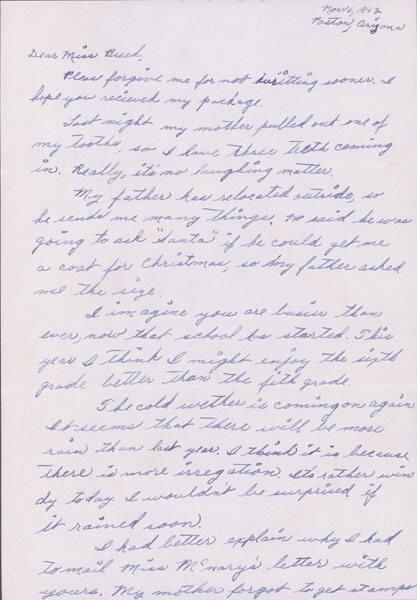 Nov 6, 1942
Poston, Arizona
Dear Miss Breed,
Pleas forgive me for not writting sooner. I
hope you recieved my package.
Last night my mother pulled out one of
my tooths, so I have three teeth coming
in. Really, it's no laughing matter.
My father has relocated outside, so
he sends me many things. He said he was
going to ask "Santa" if he could get me
a coat for Christmas, so my father asked
me the size.
I imagine you are busier than
ever, now that school has started. This
year I think I might enjoy the sixth
grade better than the fith grade.
The cold wether is coming on again.
It seems that there will be more
rain than last year. I think it is because
there is more irregation. It's rather win
dy today. I wouldn't be surprised if
it rained soon.
I had better explain why I had
to mail Miss McEnary's letter with
yours. My mother forgot to get stamps